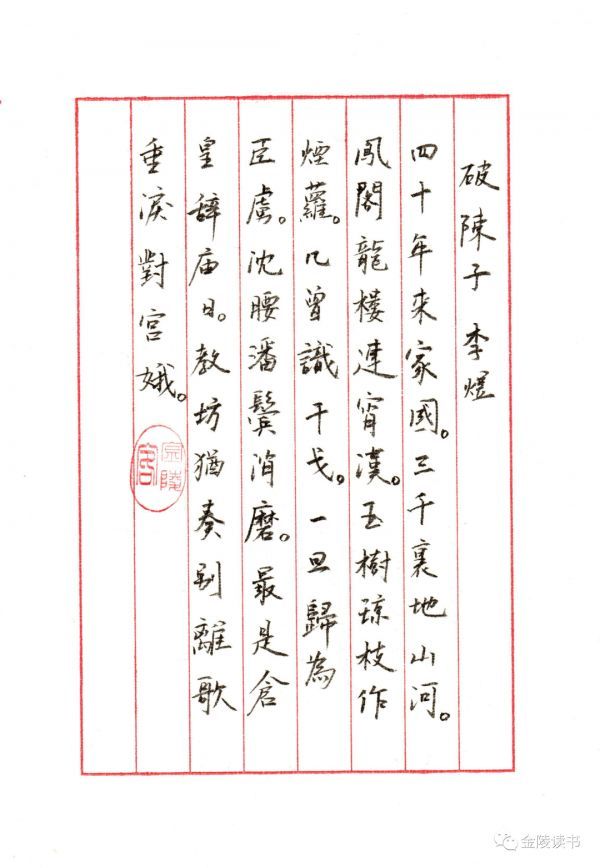 破陳子 李煜
四十年来家國。三千裏地山河。
鳳閣龍樓連霄漢。玉樹瓊枝作
煙蘿。几曾識干戈。一旦歸為
臣虜。沈腰潘鬓消磨。最是倉
皇辞庙日。教坊猶奏别離歌
垂淚對宫娥。
金陵读书